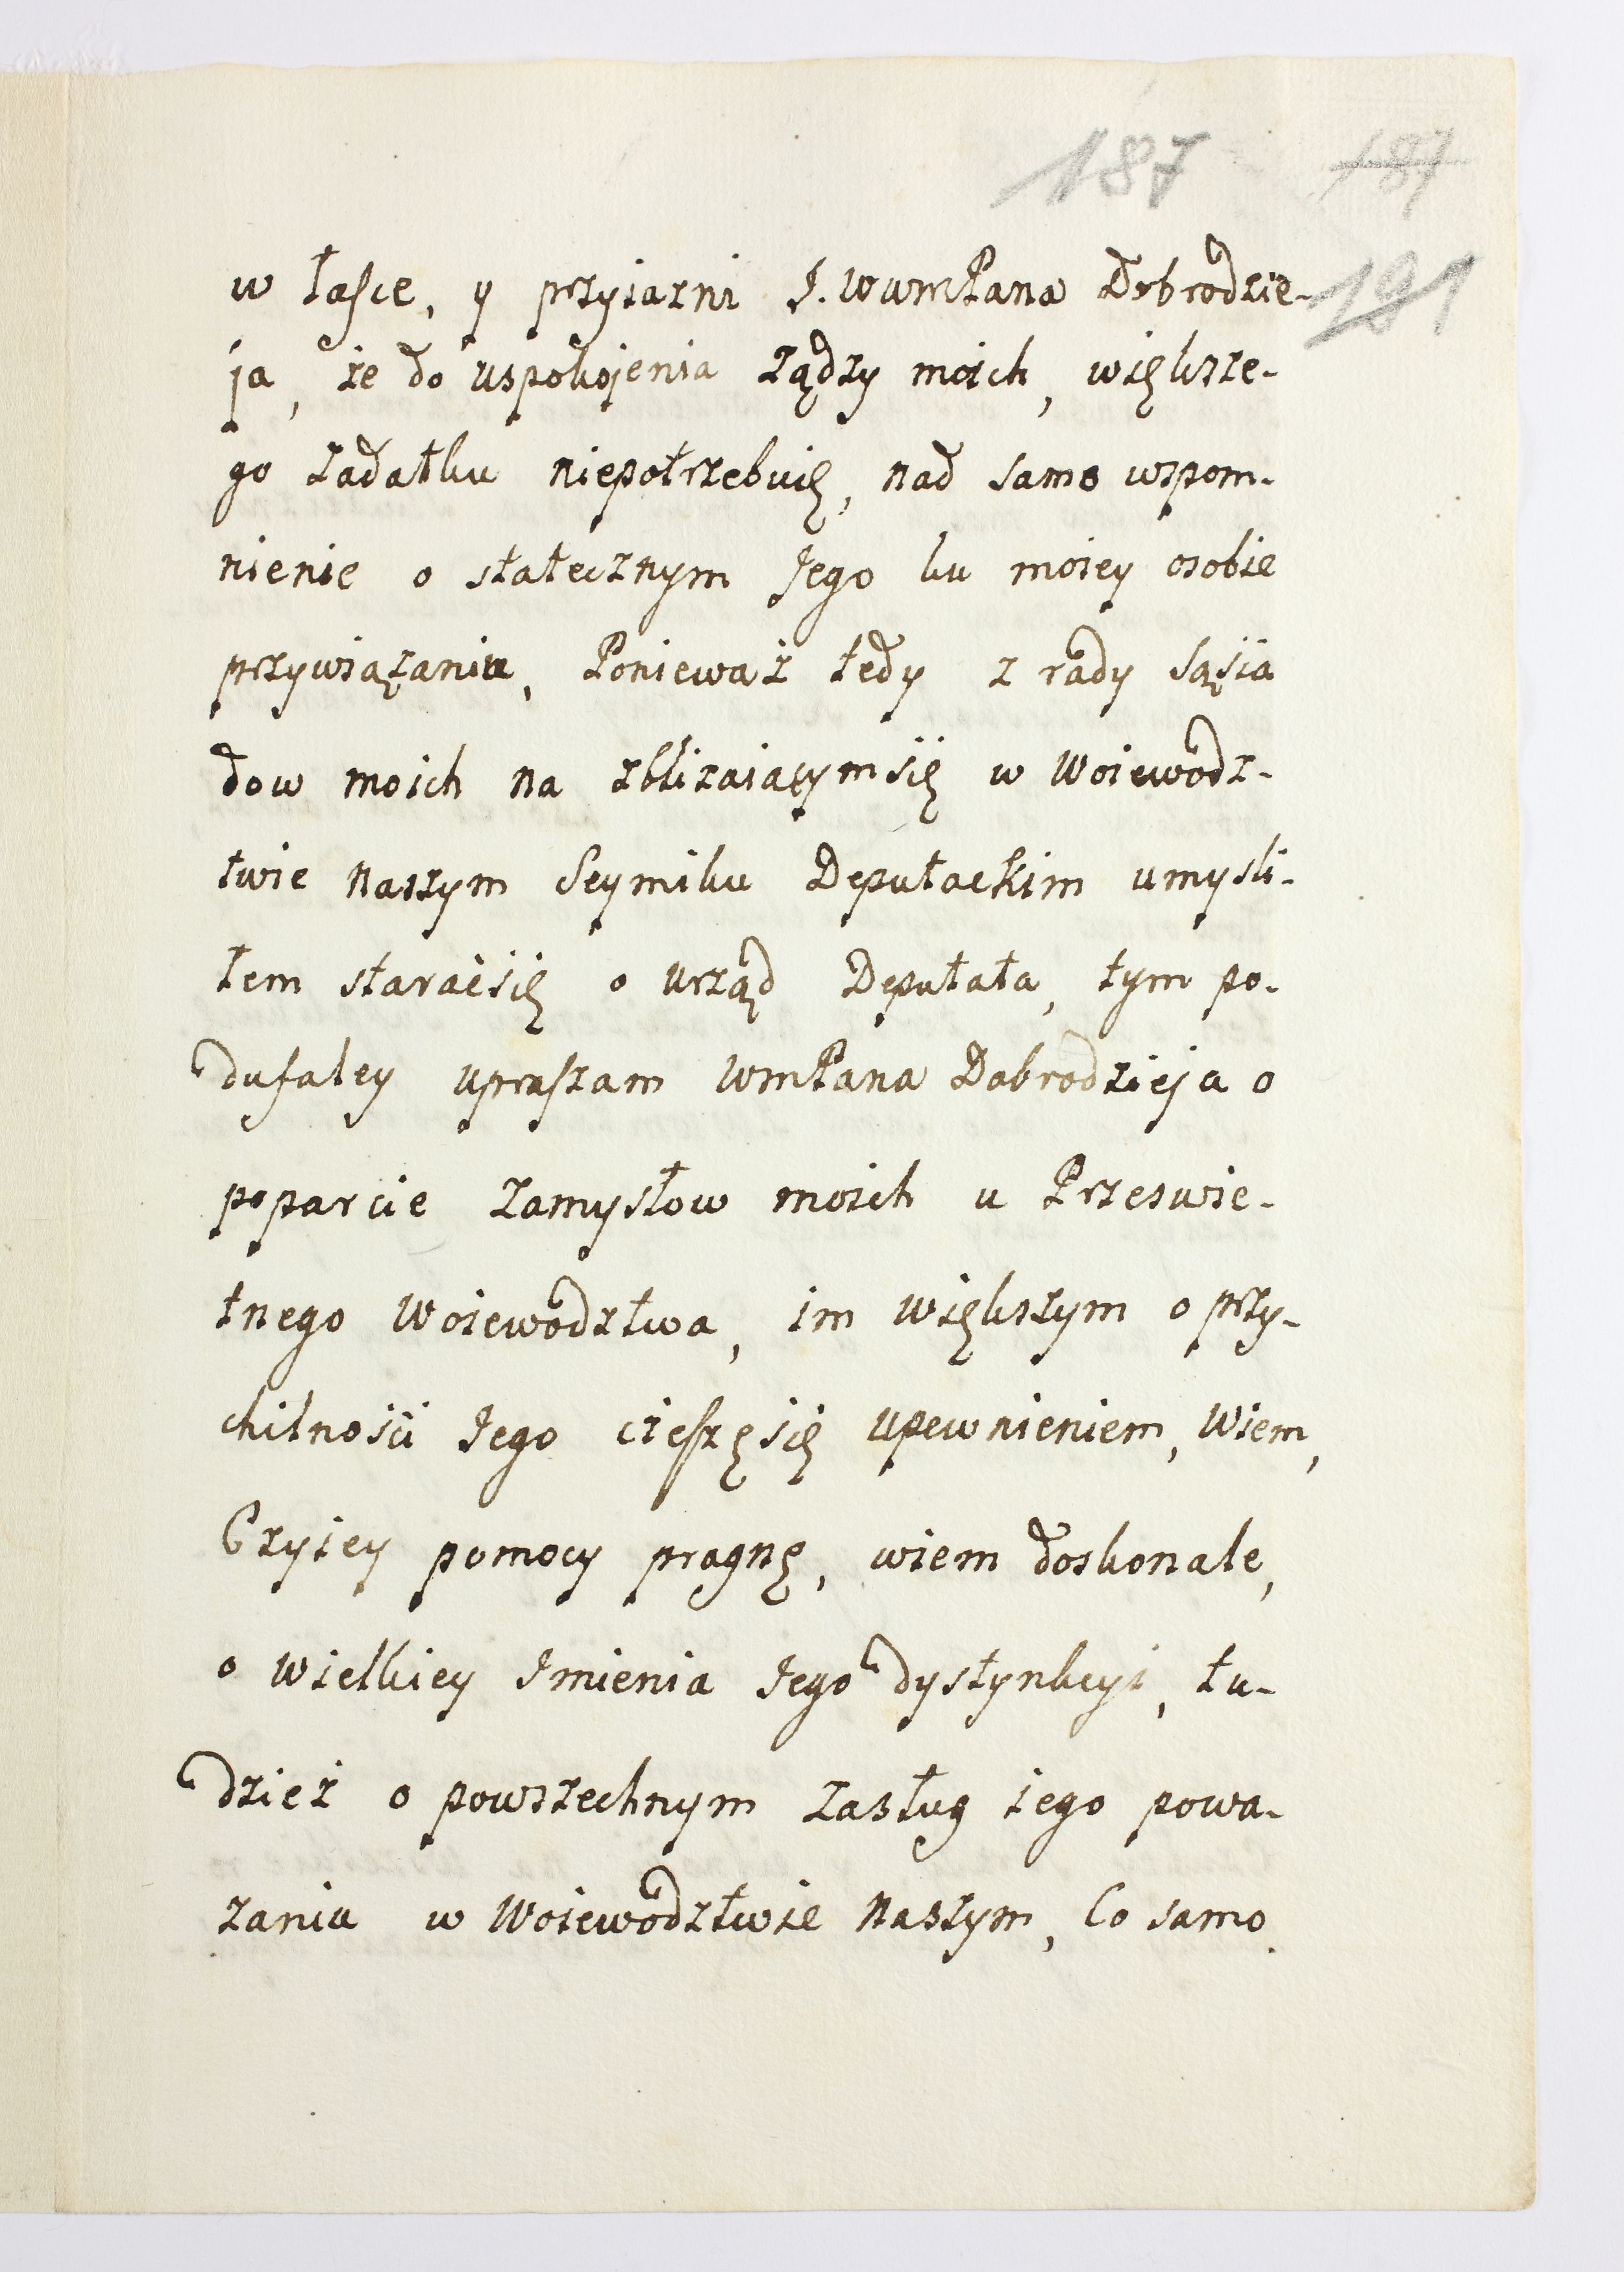 187 187
191
w łasce, y przyiazni J. WWmPana Dobrodzie-
ja, że do uspokojenia żądzy moich, większe-
go zadatku niepotrzebuię, nad samo wspom-
nienie o statecznym Jego ku moiey osobie
przywiązaniu, Ponieważ tedy z rady sąsia
dow moich na zbliżaiącymsię w Woiewodz-
twie naszym Seymiku Deputackim umysli-
łem staraćsię o Urząd Deputata, tym po-
dufaley upraszam WmPana Dobrodzieja o
poparcie zamysłow moich u Przeswie-
tnego Woiewodztwa, im większym o przy-
chilności Jego cieszęsię upewnieniem, Wiem,
Czyiey pomocy pragnę, wiem doskonale,
o wielkiey Jmienia Jego dystynkcyi, tu-
dzież o powszechnym zasług iego powa-
żaniu w Woiewodztwie naszym, Co samo